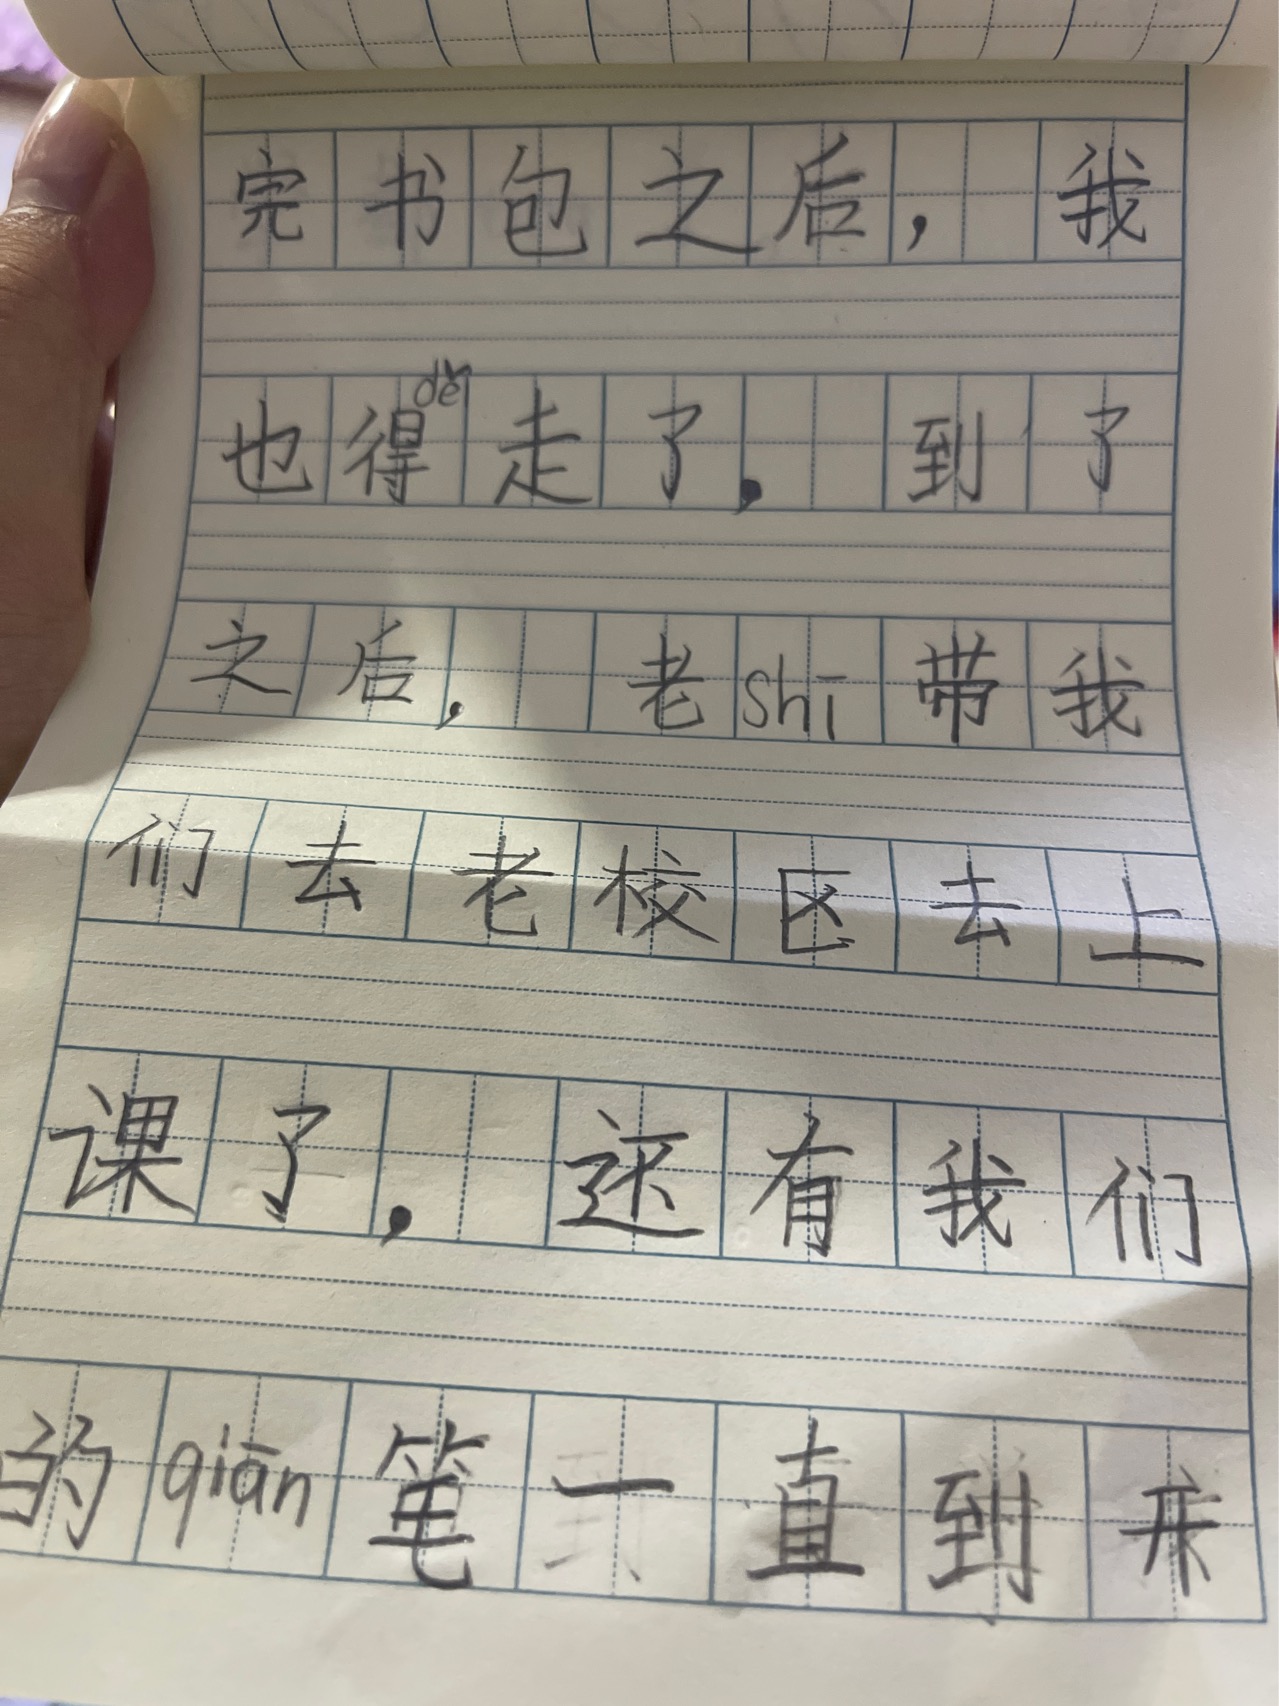 完书包之后，我
也得děi走了，到了
之后，老shī带我
们去老校区去上
课了，还有我们
的qiān笔一直到